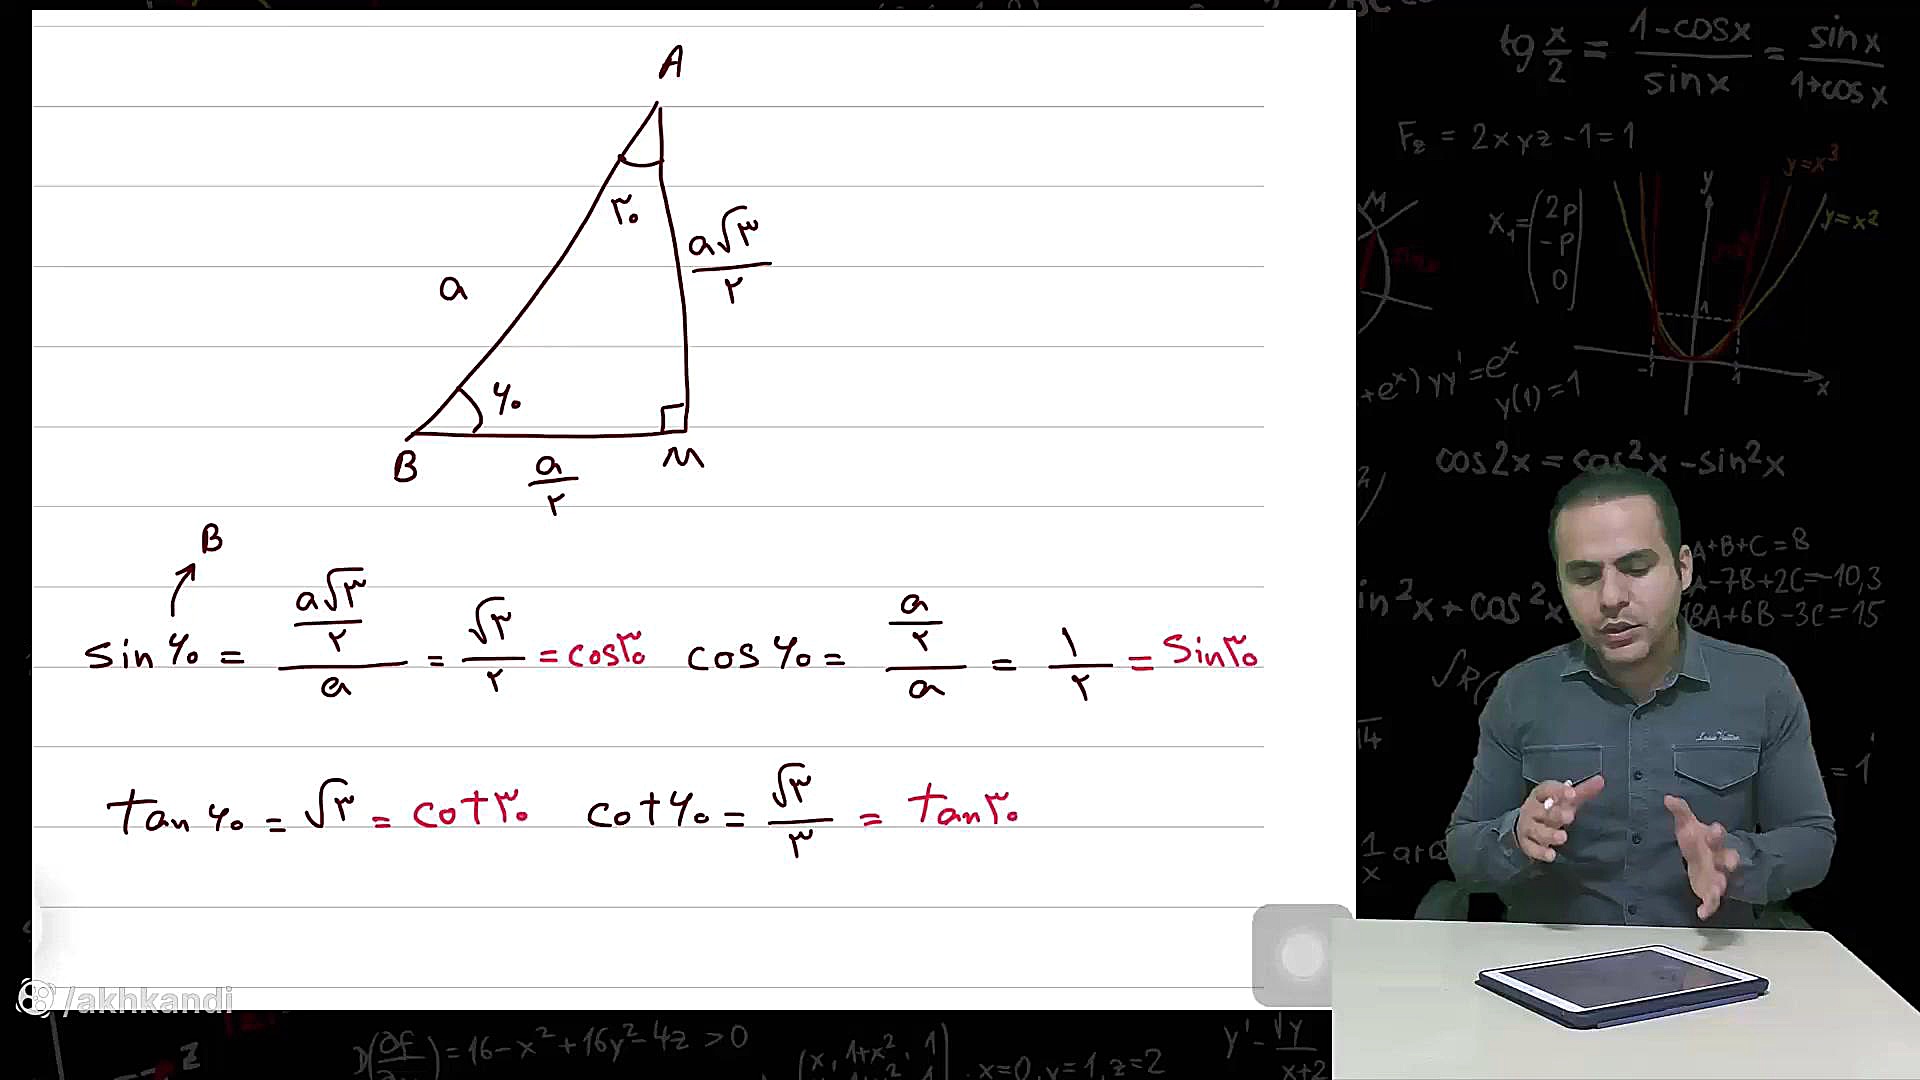 A
۳۰
a√۳/۲
a
۶۰
B a/۲ M
B
sin ۶۰ = (a√۳/۲)/a = √۳/۲ = cos ۳۰ cos ۶۰ = (a/۲)/a = ۱/۲ = sin ۳۰
tan ۶۰ = √۳ = cot ۳۰ cot ۶۰ = √۳/۳ = tan ۳۰
/akhkandi
tg x/2 = (1-cosx)/sinx = sinx/(1+cosx)
F₂ = 2xyz-1=1
y=x³
y=x²
M
x₁= (2p -p 0)
y
1
-1 1 x
+eˣ)yy'=eˣ
y(1)=1
cos2x = cos²x - sin²x
A+B+C=8
A-7B+2C=-10,3
18A+6B-3C=15
in²x + cos²x
= 1
1/x arc
z
=16-x²+16y²-4z>0
x=0, y=1, z=2
y' - √y/(x+2)